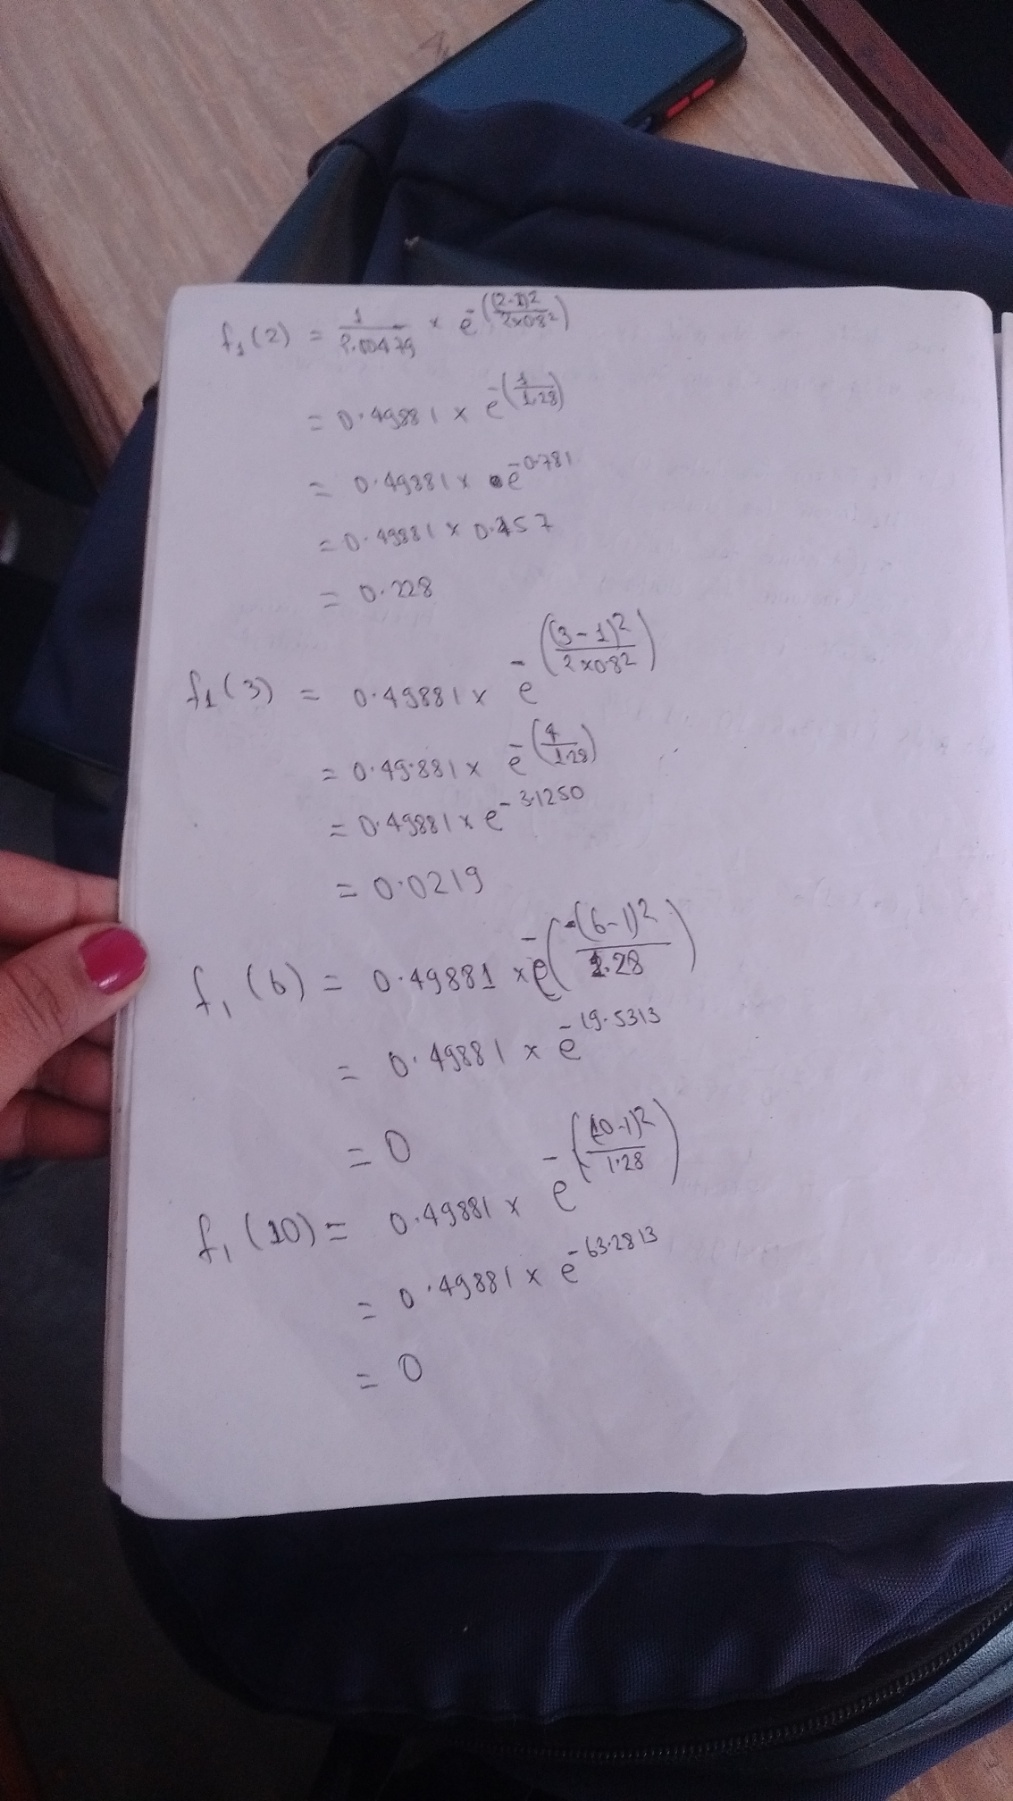 f₁(2) = 1/2.00479 × e^-((2-1)²/2×0.8²)
= 0.49881 × e^-(1/1.28)
= 0.49881 × e^-0.781
= 0.49881 × 0.457
= 0.228
f₁(3) = 0.49881 × e^-((3-1)²/2×0.8²)
= 0.49.881 × e^-(4/1.28)
= 0.49881 × e^-3.1250
= 0.0219
f₁(6) = 0.49881 × e^-(-(6-1)²/1.28)
= 0.49881 × e^-19.5313
= 0
f₁(10) = 0.49881 × e^-((10-1)²/1.28)
= 0.49881 × e^-63.2813
= 0